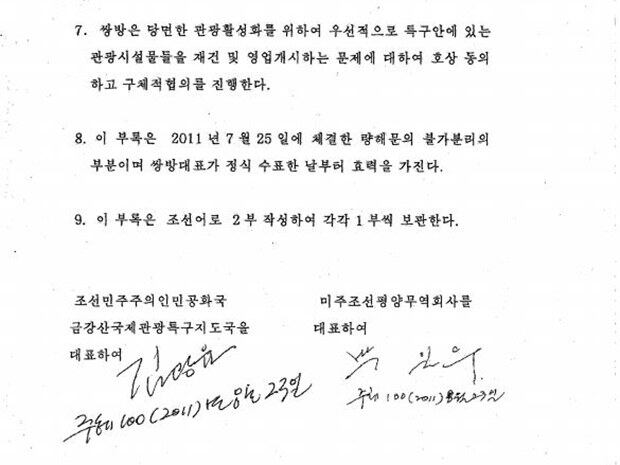 7. 쌍방은 당면한 관광활성화를 위하여 우선적으로 특구안에 있는
관광시설물들을 재건 및 영업개시하는 문제에 대하여 호상 동의
하고 구체적협의를 진행한다.
8. 이 부록은 2011년 7월 25일에 체결한 량해문의 불가분리의
부분이며 쌍방대표가 정식 수표한 날부터 효력을 가진다.
9. 이 부록은 조선어로 2부 작성하여 각각 1부씩 보관한다.
조선민주주의인민공화국
금강산국제관광특구지도국을
대표하여
주체100(2011)년 월 23일
미주조선평양무역회사를
대표하여
주체100(2011)8월23일